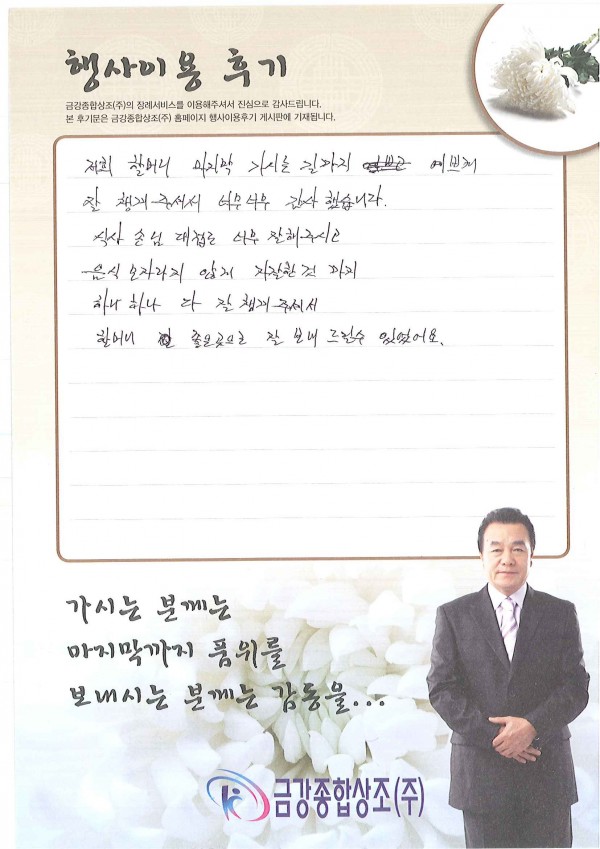 행사이용 후기
금강종합상조(주)의 장례서비스를 이용해주셔서 진심으로 감사드립니다.
본 후기문은 금강종합상조(주) 홈페이지 행사이용후기 게시판에 기재됩니다.
저희 할머니 마지막 가시는 길까지 예쁘게
잘 챙겨 주셔서 너무너무 감사했습니다.
식사 손님 대접도 너무 잘해주시고
음식 모자라지 않게 자잘한것 까지
하나 하나 다 잘 챙겨주셔서
할머니 좋은곳으로 잘 보내 드릴수 있었어요.
가시는 분께는
마지막까지 품위를
보내시는 분께는 감동을...
금강종합상조(주)